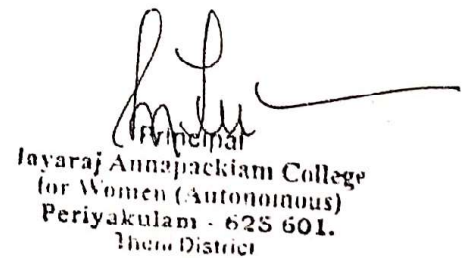 Principal
Jayaraj Annapackiam College
for Women (Autonomous)
Periyakulam - 625 601.
Theni District